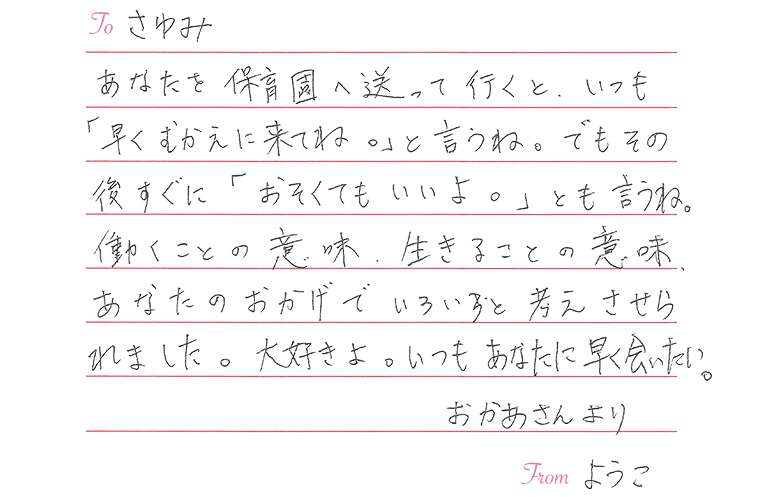 To さゆみ
あなたを保育園へ送って行くと、いつも
「早くむかえに来てね。」と言うね。でもその
後すぐに「おそくてもいいよ。」とも言うね。
働くことの意味、生きることの意味、
あなたのおかげでいろいろと考えさせら
れました。大好きよ。いつもあなたに早く会いたい。
おかあさんより
From ようこ